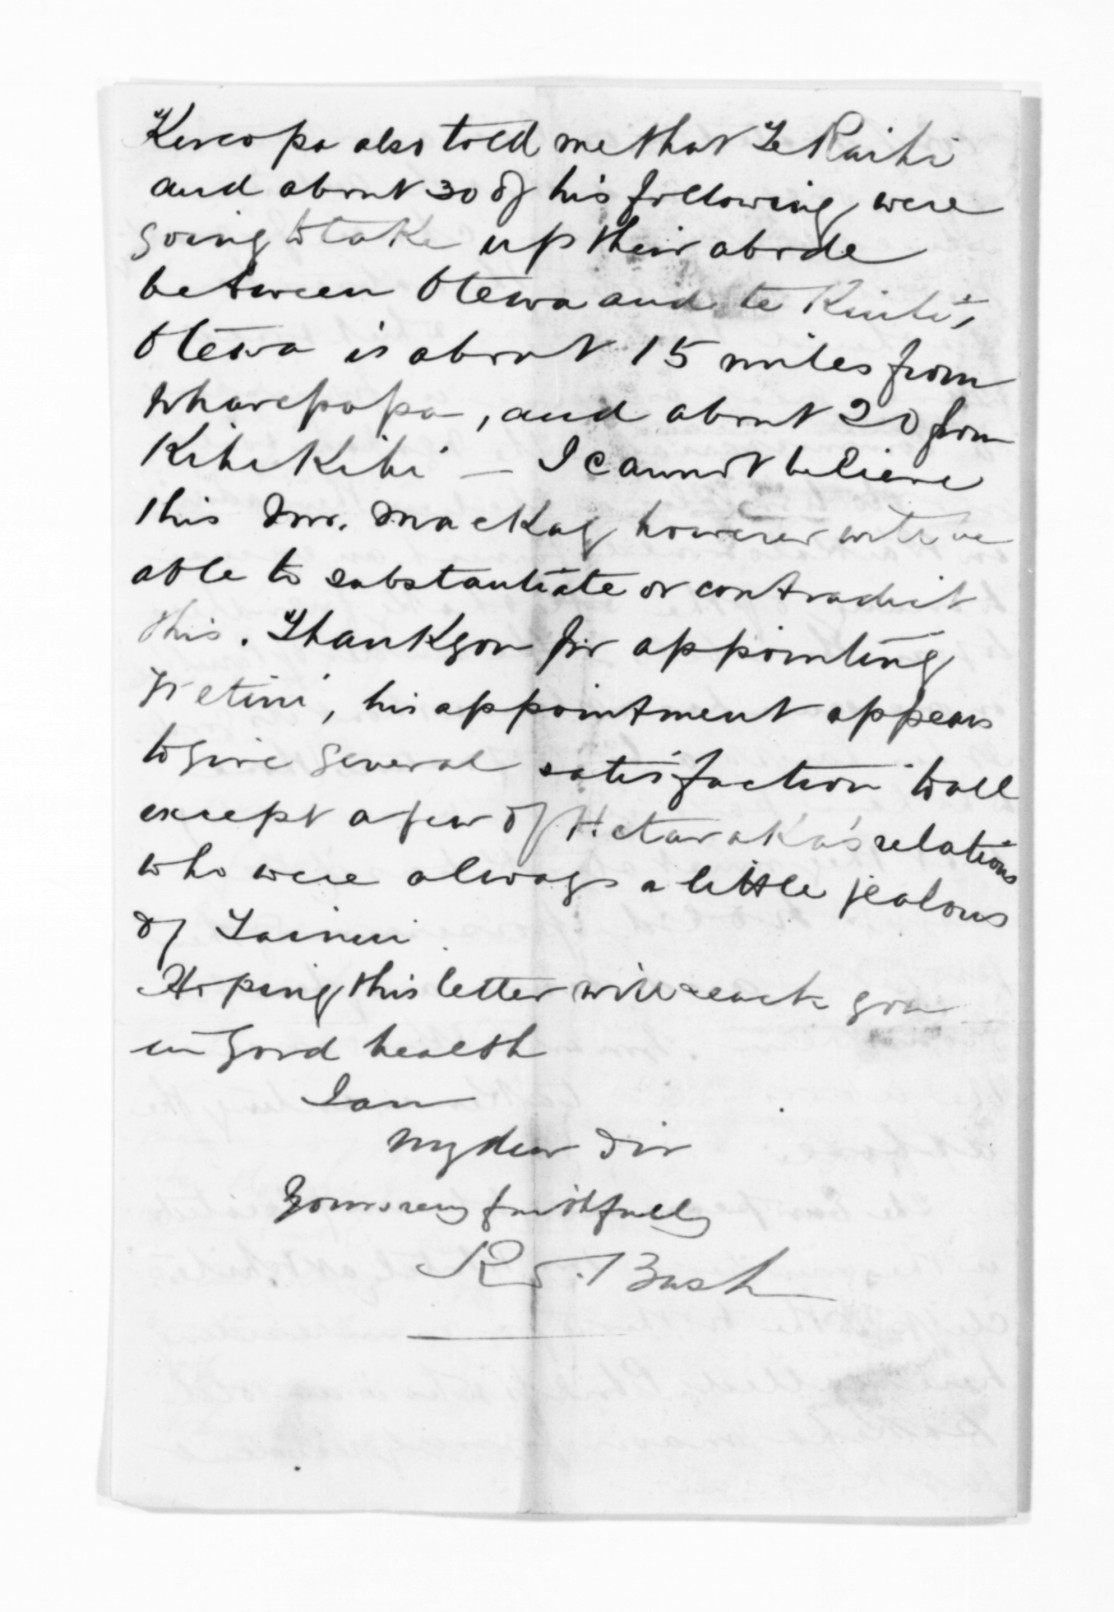 Kereopa also told me that Te Raihi
and about 30 of his following were
going to take up their abode
between Otewa and te Kuiti,
Otewa is about 15 miles from
Wharepapa, and about 20 from
Kihikihi – I cannot believe
this Mr. Mackay however will be
able to substantiate or contradict
this. Thank you for appointing
Wetini, his appointment appears
to give general satisfaction to all
except a few of Hetaraka's relations
who were always a little jealous
of Tainui.
Hoping this letter will reach you
in good health
I am
My dear Sir
Yours very faithfully
R S. Bush